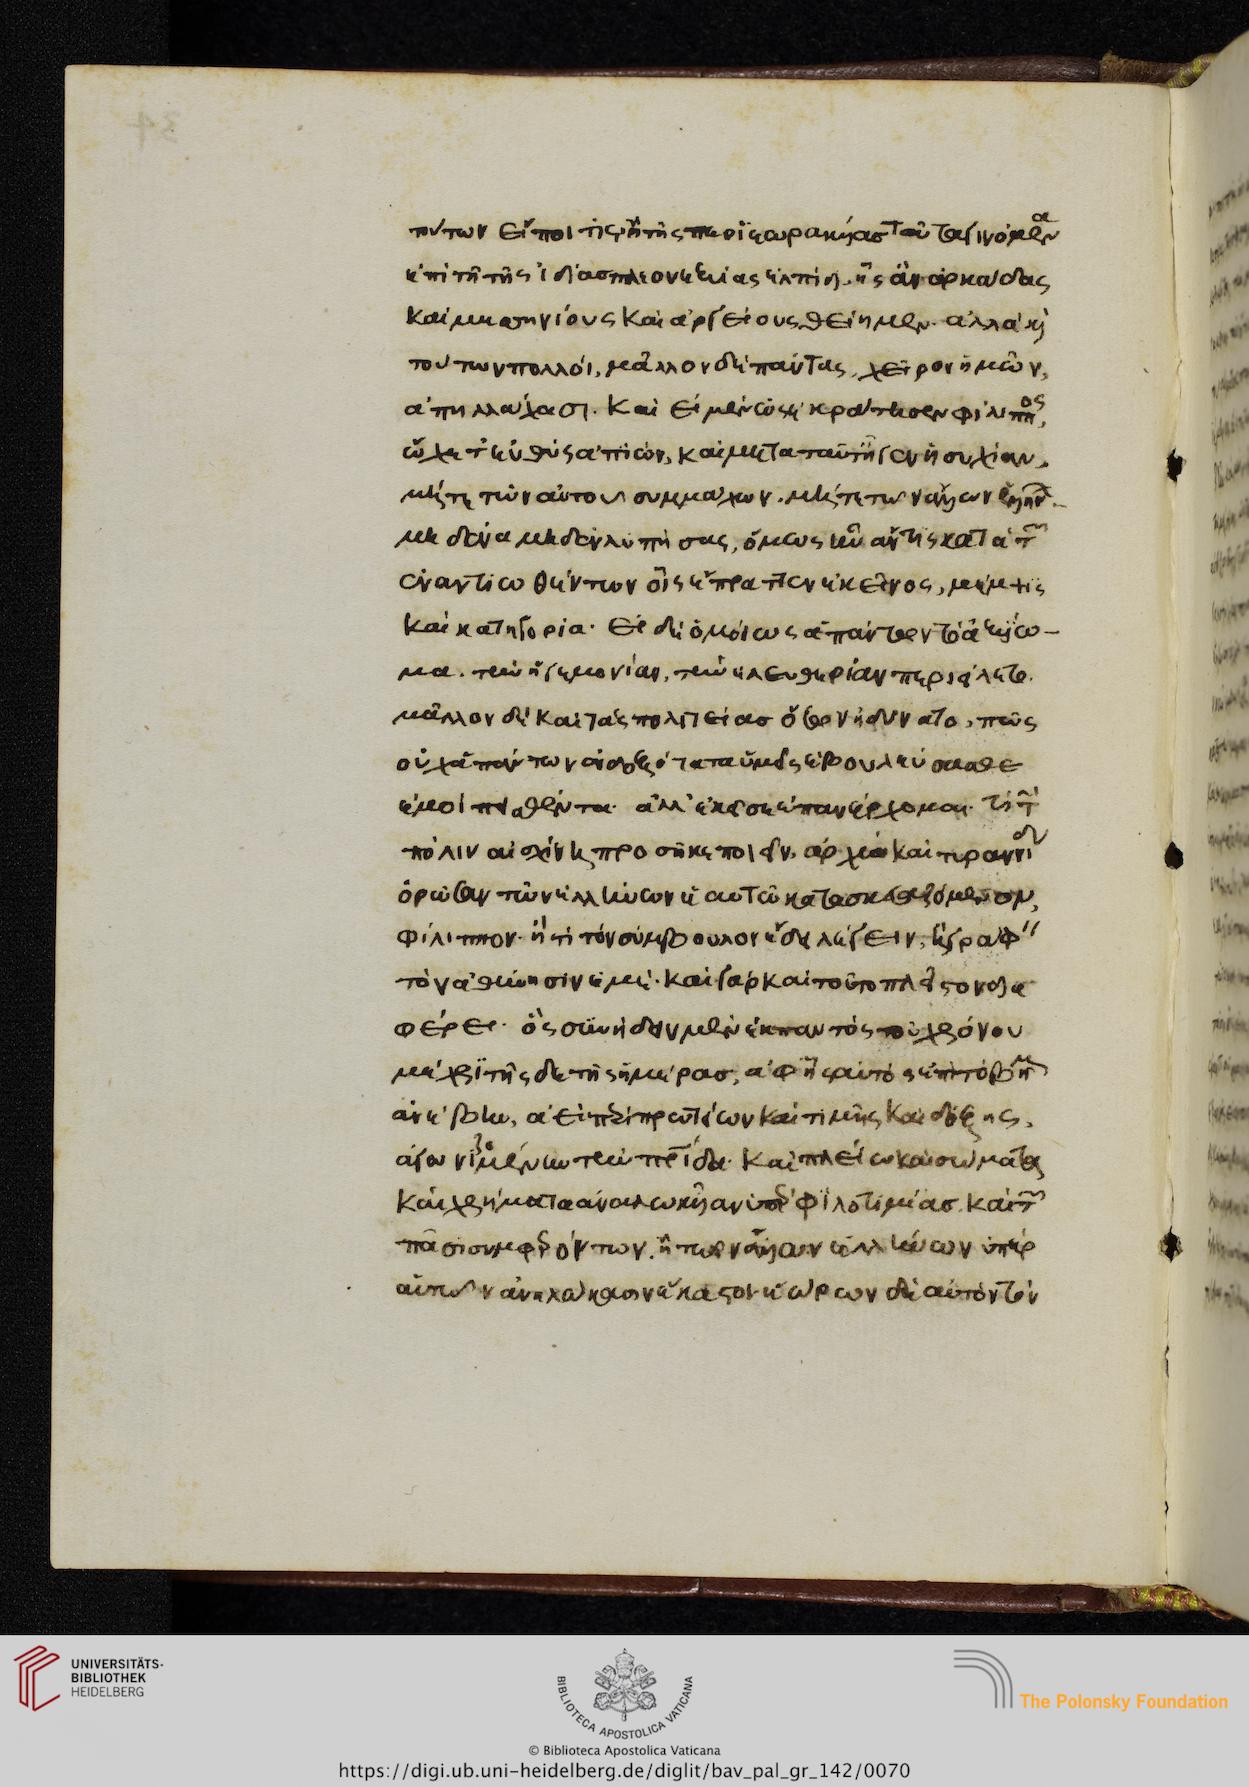 τούτων εἴποι τις, ἢ τῆς περιεωρακυίας ταῦτα γινόμενα
ἐπὶ τῇ τῆς ἰδίας πλεονεξίας ἐλπίδι, ἧς ἂν ἀρκάδας
καὶ μεσσηνίους καὶ ἀργείους θείημεν. ἀλλὰ καὶ
τούτων πολλοὶ, μᾶλλον δὲ πάντες, χεῖρον ἡμῶν,
ἀπηλλάχασι. καὶ εἰ μὲν ὡς ἐκράτησεν φίλιππος,
ὤχετ' εὐθὺς ἀπιὼν, καὶ μετὰ ταῦτ' ἦγεν ἡσυχίαν,
μήτε τῶν αὑτοῦ συμμάχων. μήτε τῶν ἄλλων ἑλλήνων
μηδένα μηδὲν λυπήσας, ὅμως ἦν ἄν τις κατὰ τῶν
ἐναντιωθέντων οἷς ἔπραττεν ἐκεῖνος, μέμψις
καὶ κατηγορία. εἰ δὲ ὁμοίως ἁπάντων τὸ ἀξίω-
μα. τὴν ἡγεμονίαν, τὴν ἐλευθερίαν περιείλετο.
μᾶλλον δὲ καὶ τὰς πολιτείας ὅσων ἠδύνατο, πῶς
οὐχ ἁπάντων ἐνδοξότατα ὑμεῖς ἐβουλεύσασθε
ἐμοὶ πεισθέντες. ἀλλ' ἐκεῖσε ἐπανέρχομαι. τί τὴν
πόλιν αἰσχίνη προσῆκε ποιεῖν, ἀρχὴν καὶ τυραννίδα
ὁρῶσαν τῶν ἑλλήνων ἑαυτῷ κατασκευαζόμενον,
φίλιππον. ἢ τί τὸν σύμβουλον ἔδει λέγειν, ἢ γράφειν
τὸν ἀθήνησιν ἐμέ. καὶ γὰρ καὶ τοῦτο πλεῖστον δια
φέρει. ὃς συνῄδειν μὲν ἐκ παντὸς τοῦ χρόνου
μέχρι τῆς δε τῆς ἡμέρας, ἀφ' ἧς αὐτὸς ἐπὶ τὸ βῆμα
ἀνέβην, ἀεὶ περὶ πρωτείων καὶ τιμῆς καὶ δόξης,
ἀγωνιζομένην τὴν πατρίδα. καὶ πλείω καὶ σώματα
καὶ χρήματα ἀναλωκυῖαν ὑπὲρ φιλοτιμίας. καὶ τῶν
πᾶσι συμφερόντων. ἢ τῶν ἄλλων ἑλλήνων ὑπὲρ
αὑτῶν ἀνηλώκασιν ἕκαστον, ἑώρων δὲ αὐτὸν τὸν
UNIVERSITÄTS-
BIBLIOTHEK
HEIDELBERG
BIBLIOTECA APOSTOLICA VATICANA
The Polonsky Foundation
© Biblioteca Apostolica Vaticana
https://digi.ub.uni-heidelberg.de/diglit/bav_pal_gr_142/0070